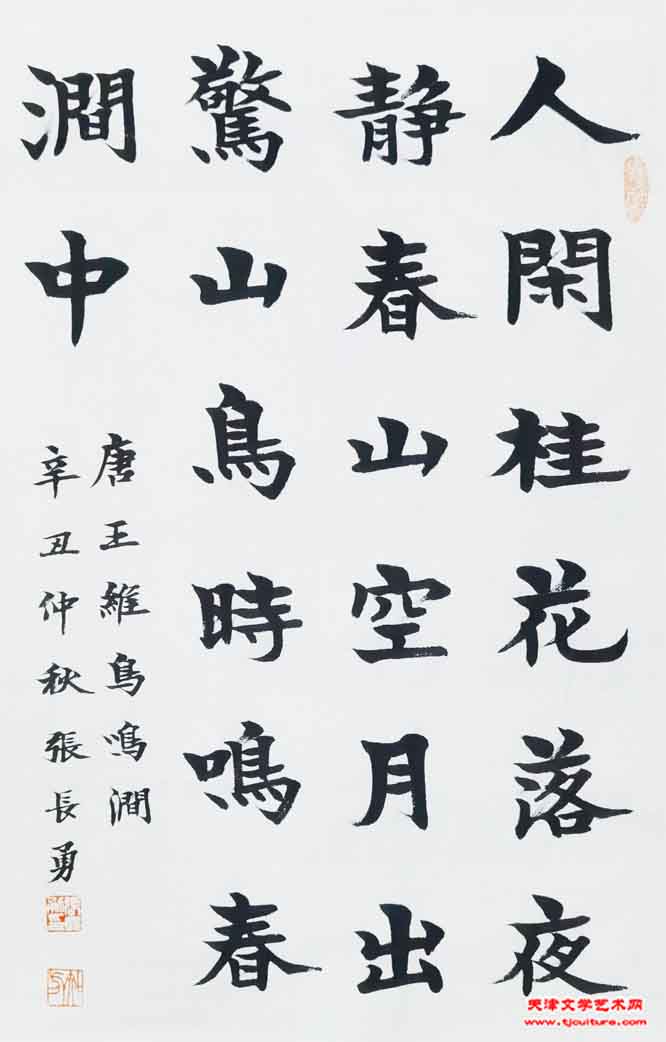 人閑桂花落夜
静春山空月出
驚山鳥時鳴春
澗中
唐王維鳥鳴澗
辛丑仲秋張長勇
天津文学艺术网
www.tjculture.com